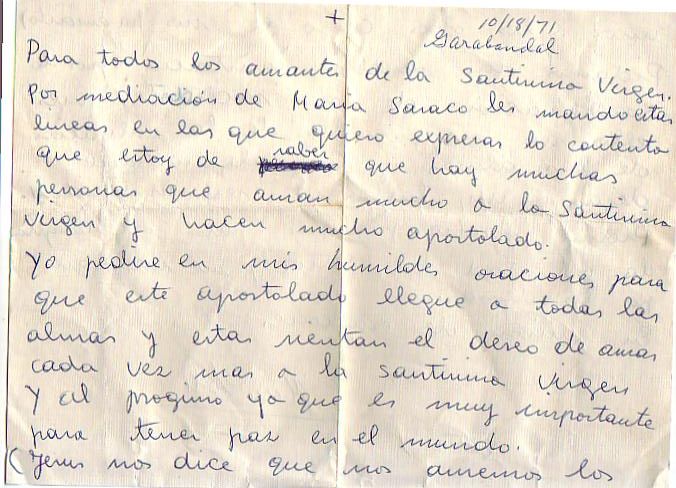 +
10/18/71
Garabandal
Para todos los amantes de la Santisima Virgen.
Por mediación de Maria Saraco les mando estas
lineas en las que quiero expresar lo contenta
que estoy de saber que hay muchas
personas que aman mucho a la Santisima
Virgen y hacen mucho apostolado.
Yo pedire en mis humildes oraciones para
que este apostolado llegue a todas las
almas y estas sientan el deseo de amar
cada vez mas a la Santisima Virgen
Y al progimo ya que es muy importante
para tener paz en el mundo.
(Jesus nos dice que nos amemos los